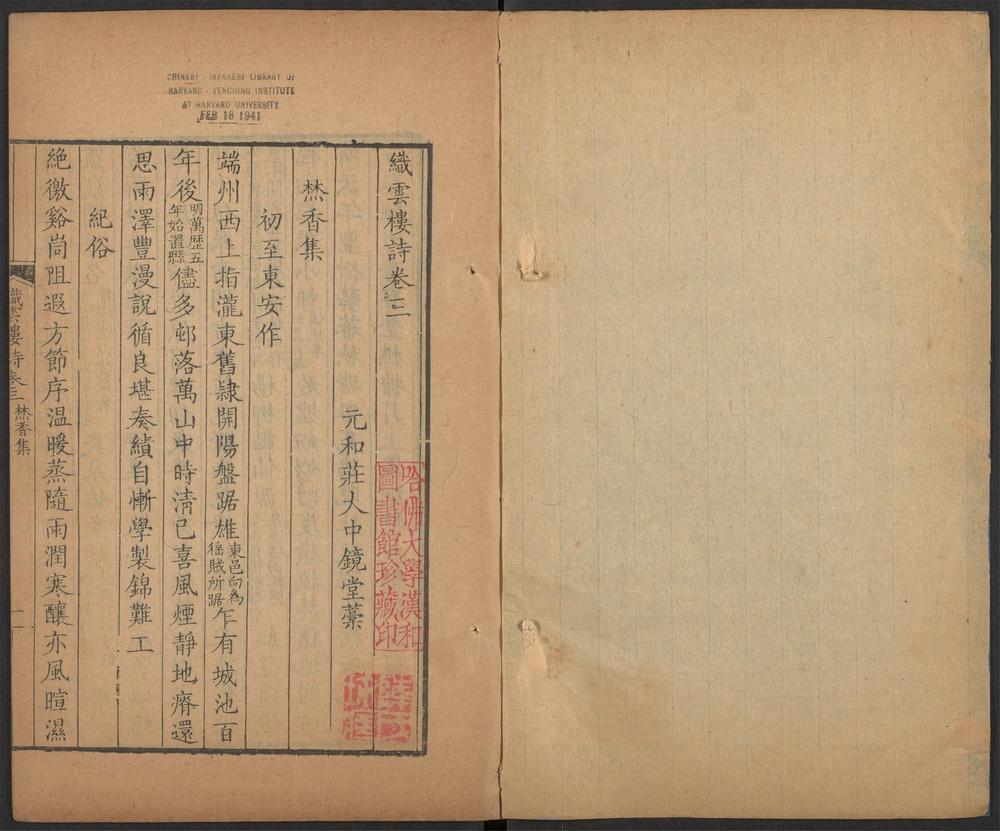 CHINESE - JAPANESE LIBRARY OF
HARVARD - YENCHING INSTITUTE
AT HARVARD UNIVERSITY
FEB 18 1941
織雲樓詩卷三
元和莊大中鏡堂藁
哈佛大學漢和
圖書館珍藏印
爇香集
初至東安作
端州西上指瀧東舊隸開陽盤踞雄東邑向為猺賊所踞乍有城池百
年後明萬歷五年始置縣儘多邨落萬山中時清已喜風煙靜地瘠還
思雨澤豐漫說循良堪奏績自慚學製錦難工
紀俗
絕徼谿峝阻遐方節序溫暖蒸隨雨潤寒釀亦風暄濕
織雲樓詩卷三 爇香集 一